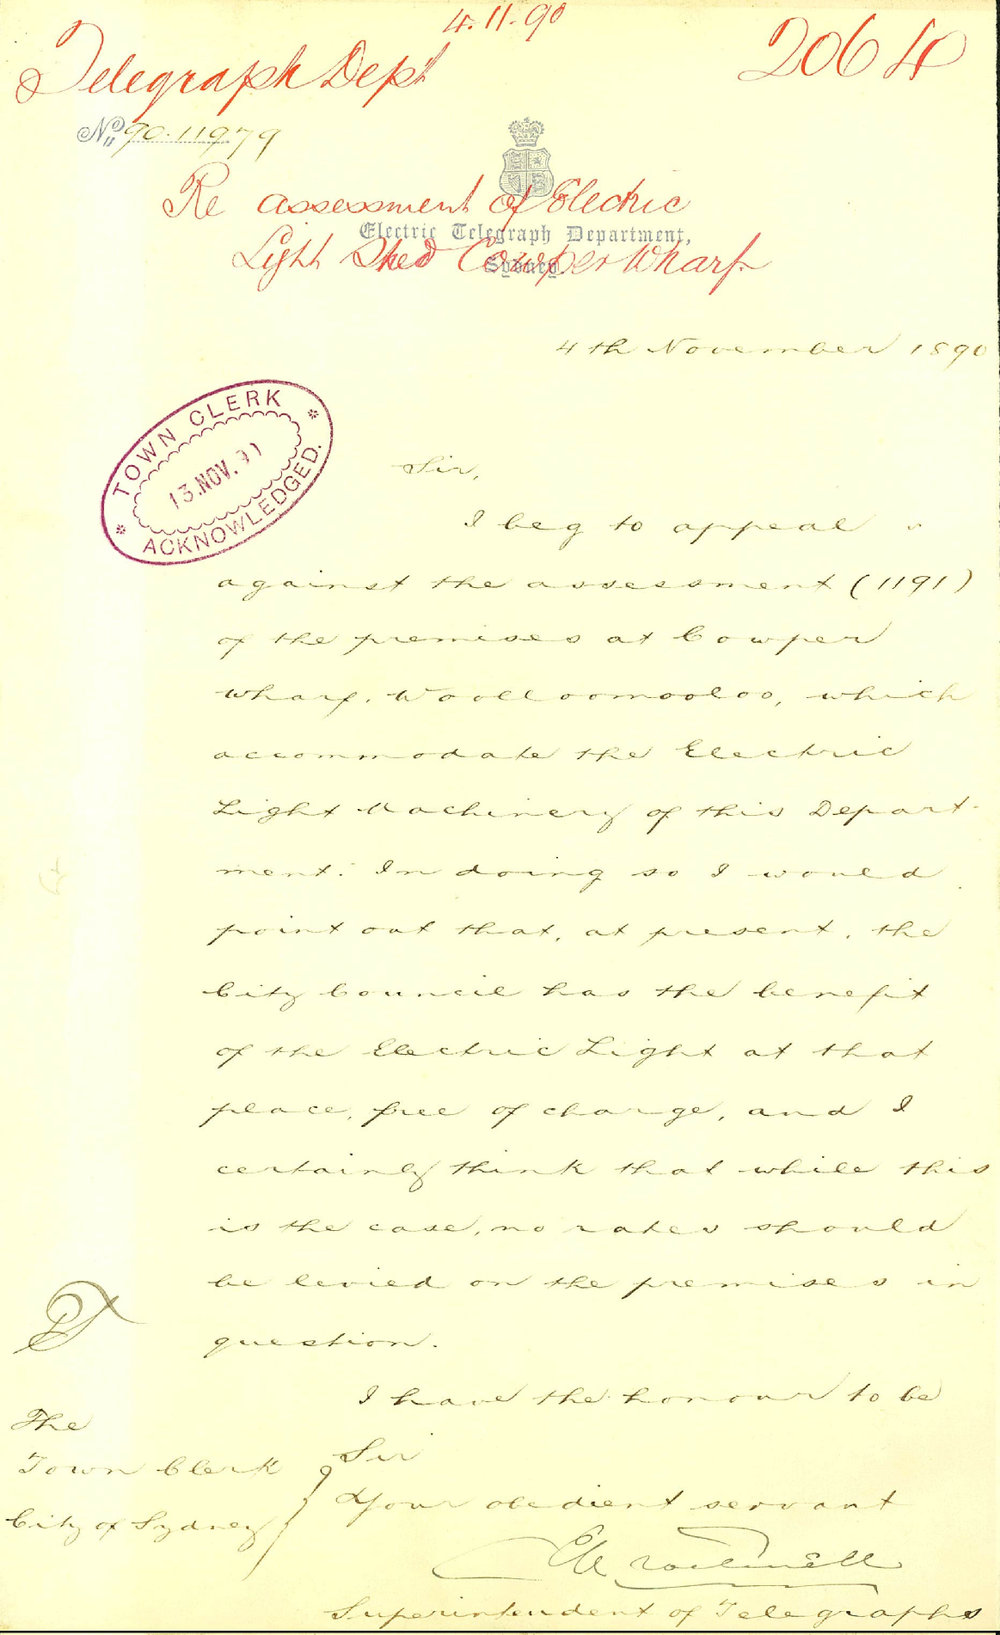 4.11.90
Telegraph Dept
2064
No. 90.11979
Re assessment of Electric
Electric Telegraph Department,
Light Shed Cowper Wharf
Sydney.
4th November 1890
TOWN CLERK
13.NOV.90
ACKNOWLEDGED.
Sir,
I beg to appeal
against the assessment (1191)
of the premises at Cowper
Wharf, Woolloomooloo, which
accommodate the Electric
Light Machinery of this Depart-
ment. In doing so I would
point out that, at present, the
City Council has the benefit
of the Electric Light at that
place, free of charge, and I
certainly think that while this
is the case, no rates should
be levied on the premises in
question.
I have the honour to be
Sir
Your obedient servant
Superintendent of Telegraphs
The
Town Clerk
City of Sydney